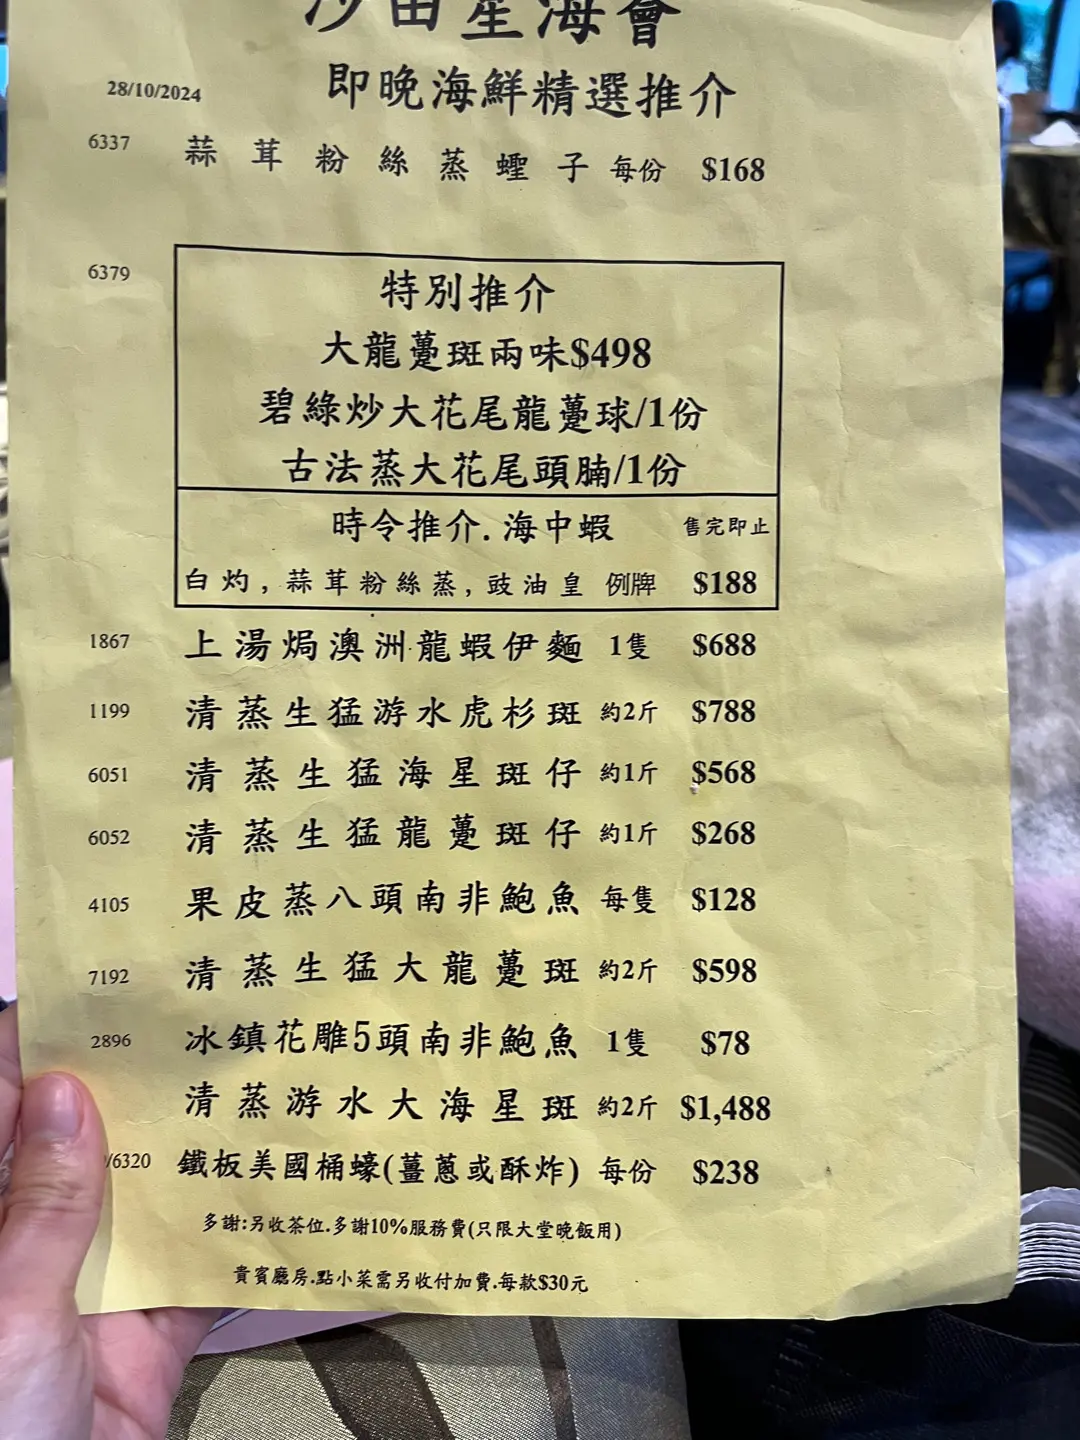 沙田星海會
28/10/2024 即晚海鮮精選推介
6337 蒜茸粉絲蒸蟶子 每份 $168
6379 特別推介
大龍躉斑兩味$498
碧綠炒大花尾龍躉球/1份
古法蒸大花尾頭腩/1份
時令推介.海中蝦 售完即止
白灼,蒜茸粉絲蒸,豉油皇 例牌 $188
1867 上湯焗澳洲龍蝦伊麵 1隻 $688
1199 清蒸生猛游水虎杉斑 約2斤 $788
6051 清蒸生猛海星斑仔 約1斤 $568
6052 清蒸生猛龍躉斑仔 約1斤 $268
4105 果皮蒸八頭南非鮑魚 每隻 $128
7192 清蒸生猛大龍躉斑 約2斤 $598
2896 冰鎮花雕5頭南非鮑魚 1隻 $78
清蒸游水大海星斑 約2斤 $1,488
/6320 鐵板美國桶蠔(薑蔥或酥炸) 每份 $238
多謝:另收茶位.多謝10%服務費(只限大堂晚飯用)
貴賓廳房.點小菜需另收付加費.每款$30元